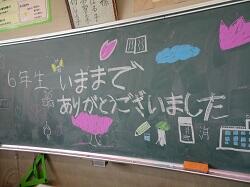 6年生 いままで
ありがとうございました